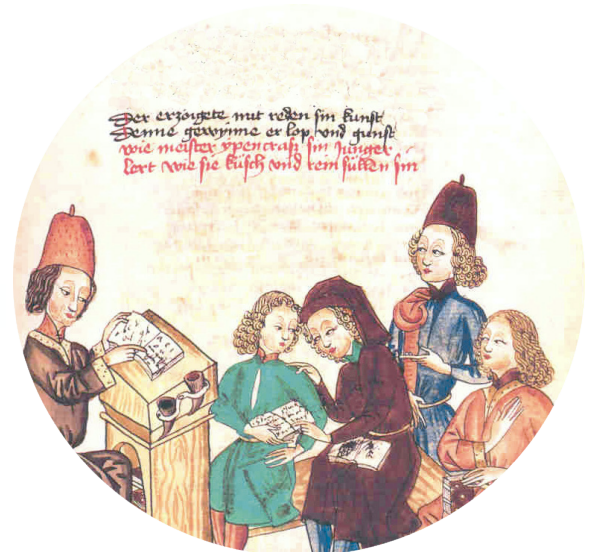 Der erzoigete mit reden sin kunst
Denne gewynne er lop vnd gunst
wie meister ypencras sin junger
lert wie sie küsch vnd rein süllen sin